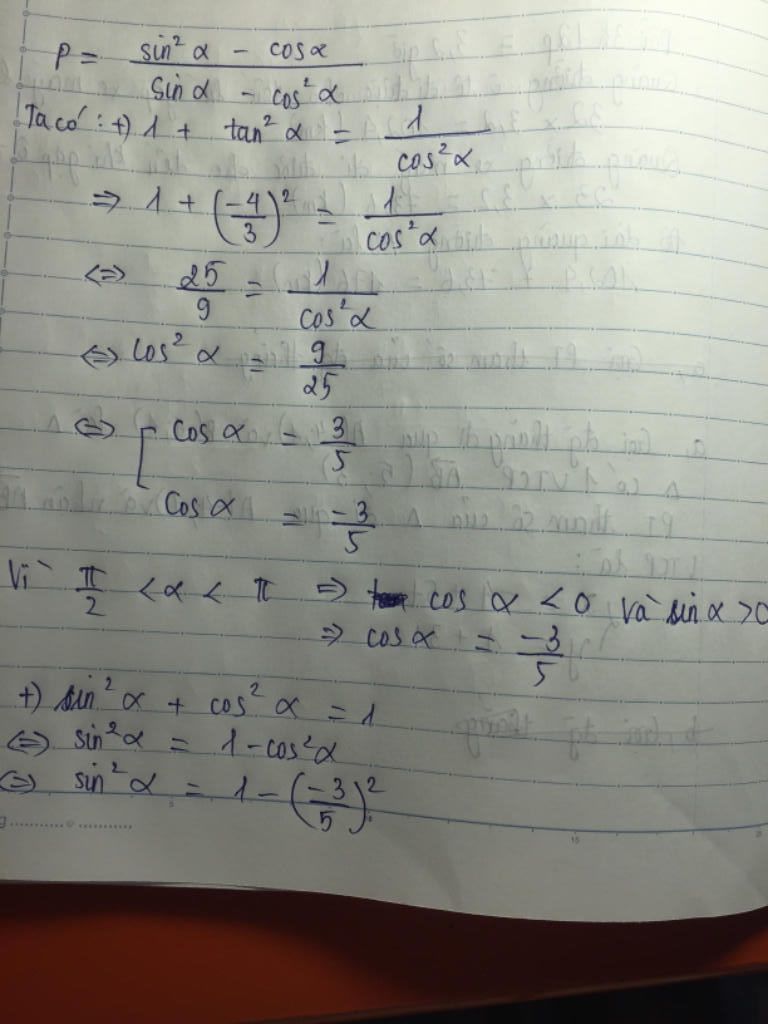 P = (sin² α - cosα) / (Sin α - cos² α)
Ta có: +) 1 + tan² α = 1 / cos² α
⇒ 1 + (-4/3)² = 1 / cos² α
⇔ 25/9 = 1 / cos² α
⇔ cos² α = 9/25
⇔ [ cos α = 3/5
Cos α = -3/5
Vì π/2 < α < π ⇒ cos α < 0 và sin α > 0
⇒ cos α = -3/5
+) sin² α + cos² α = 1
⇔ sin² α = 1 - cos² α
⇔ sin² α = 1 - (-3/5)²